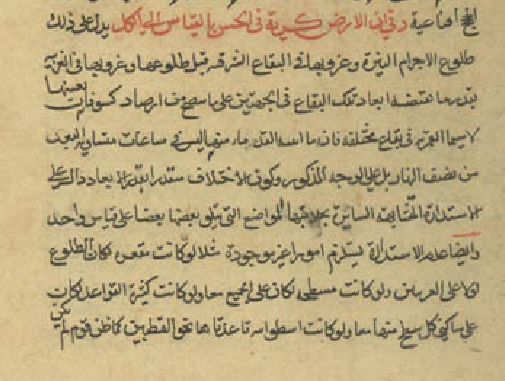 في ان الارض كرية في الحس بالقياس الى الكل يدل على ذلك
طلوع الاجرام النيرة وغروبها في البقاع الشرقية قبل طلوعها وغروبها في الغربية
بقدر ما تقتضيه ابعاد تلك البقاع في الجهتين على ما صح من ارصاد كسوفات بعينها
لا سيما القمرية في بقاع مختلفة فان ما ليس في ساعات متساوية البعد
من نصف النهار بل على الوجه المذكور وكون الاختلاف بقدر الابعاد دال على
الاستدارة المتشابهة الساترة للمواضع التي يتلو بعضها بعضا على قياس واحد
وايضا عدم الاستدارة يستلزم امورا غير موجودة مثلا لو كانت مقعرة لكان الطلوع
اولا على الغربيين ولو كانت مسطحة لكان على الجميع معا ولو كانت كثيرة القواعد لكان
على ساكني كل سطح منها معا ولو كانت اسطوانية قاعدتاها نحو القطبين كما ظن قوم لم يكن